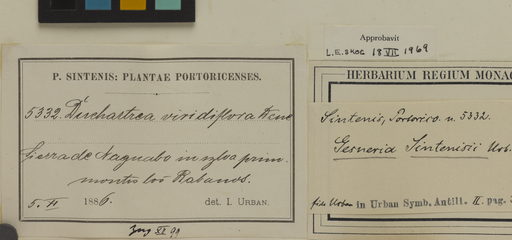 Approbavit
L.E.SKOG 18 VII 1969
P. SINTENIS: PLANTAE PORTORICENSES.
5332. Duchartrea viridiflora Dcne
Sierra de Naguabo in sylva prim.
montis los Rabanos.
5. II 1886. det. I. URBAN.
XI 99
HERBARIUM REGIUM MONAC
Sintenis, Portorico. n. 5332.
Gesneria Sintenisii Urb.
fide Urban in Urban Symb. Antill. II. pag. 3